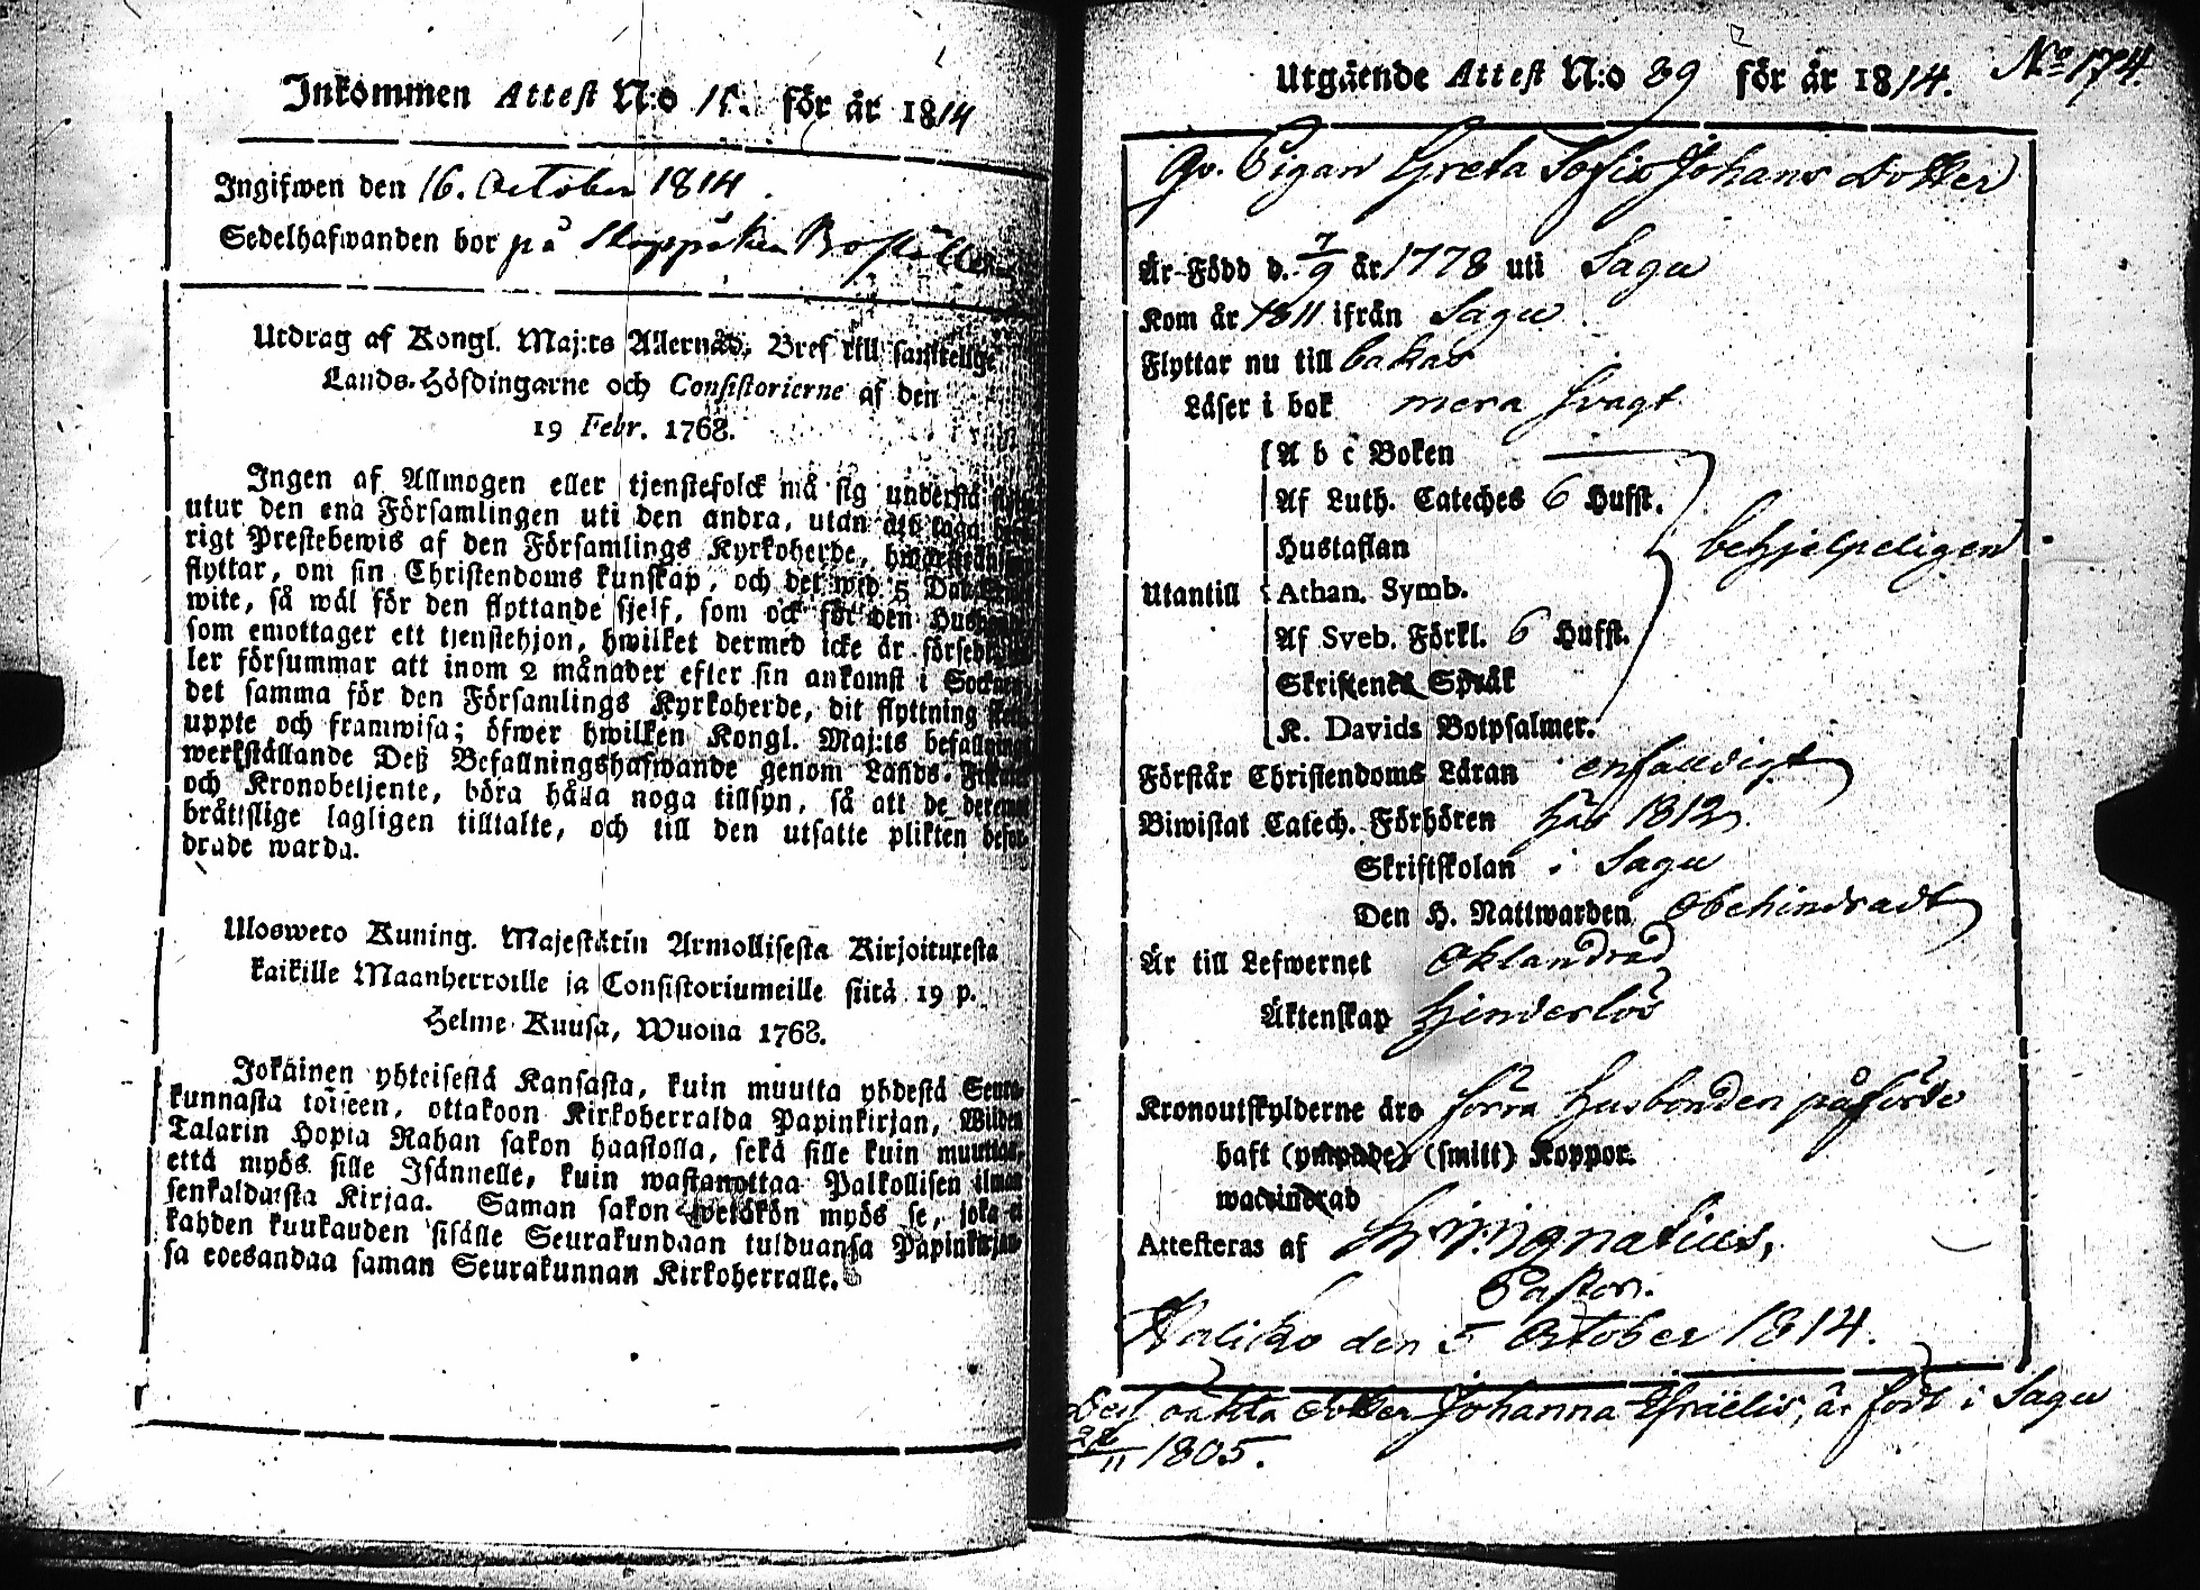 Inkommen Attest N:o 15. för år 1814
Ingifwen den 16. October 1814.
Sedelhafwanden bor på
Utdrag af Kongl. Maj:ts Allernåd. Bref till samtelige
Lands-Höfdingarne och Consistorierne af den
19 Febr. 1768.
Ingen af Allmogen eller tjenstefolck må sig understå
utur den ena Församlingen uti den andra, utan att taga
rigt Prestebewis af den Församlings Kyrkoherde,
flyttar, om sin Christendoms kunskap, och det wid 5 Dal.
wite, så wäl för den flyttande sjelf, som ock för den
som emottager ett tjenstehjon, hwilket dermed icke är
ler försummar att inom 2 månader efter sin ankomst i Socknen,
det samma för den Församlings Kyrkoherde, dit flyttning
uppte och framwisa; öfwer hwilken Kongl. Maj:ts befallning
werkställande Deß Befallningshafwande genom Lands-
och Kronobetjente, böra hålla noga tillsyn, så att de deremot
bråttslige lagligen tilltalte, och till den utsatte plikten befor-
drade warda.
Ulosweto Kuning. Majestätin Armollisesta Kirjoituxesta
kaikille Maanherroille ja Consistoriumeille siitä 19 p.
Helme Kuusa, Wuona 1768.
Jokainen yhteisestä Kansasta, kuin muutta yhdestä Seura-
kunnasta toiseen, ottakoon Kirkoherralda Papinkirjan, Wiiden
Talarin Hopia Rahan sakon haastolla, sekä sille kuin muuttaa,
että myös sille Isännelle, kuin wastanottaa Palkollisen ilman
senkaldaista Kirjaa. Saman sakon wetäkön myös se, joka ei
kahden kuukauden sisälle Seurakundaan tulduansa Papinkirjan-
sa edesandaa saman Seurakunnan Kirkoherralle.
Utgående Attest N:o 89 för år 1814. No 174.
Pigan Greta Sofia Johans Dotter
Är Född d. 7/9 år 1778 uti Sagu
Kom år 1811 ifrån Sagu
Flyttar nu till bakas
Läser i bok mera svagt
A b c Boken
Af Luth. Cateches 6 Hufst.
Hustaflan
behjelpeligen
Utantill Athan. Symb.
Af Sveb. Förkl. 6 Hufst.
Skriftenes Språk
K. Davids Botpsalmer.
Förstår Christendoms Läran enfaldigt
Biwistat Catech. Förhören här 1812
Skriftskolan i Sagu
Den H. Nattwarden Obehindradt
Är till Lefwernet Oklandrad
Äktenskap hinderlös
Kronoutskylderne äro förra husbonden påförde
haft (ympade) (smitt) Koppor.
waccinerad
Attesteras af Ignatius,
Pastor.
Haliko den 5 October 1814.
Dess oäkta dotter Johanna Israëlis, är född i Sagu
11 1805.